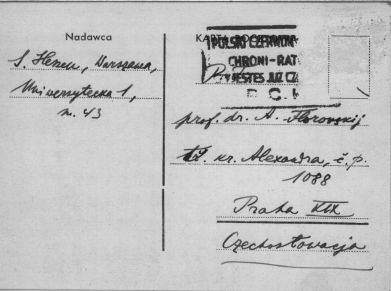 Nadawca
S. Hessen, Warszawa,
Uniwersytecka 1,
m. 43
KARTA
POLSKI CZERWON
CHRONI-RAT
JESTEŚ JUŻ CZ
P.C.K
prof. dr. A. Florovskij
tř. kr. Alexandra, č.p.
1088
Praha XIX
Czechosłowacja